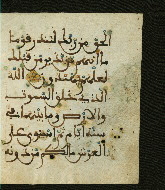 الحق من ربك لتنذر قوما
ما أتىهم من نذير من قبلك
لعلهم يهتدون الله
الذى خلق السموت
والارض وما بينهما فى
ستة ايام ثم استوى على
العرش ما لكم من دونه